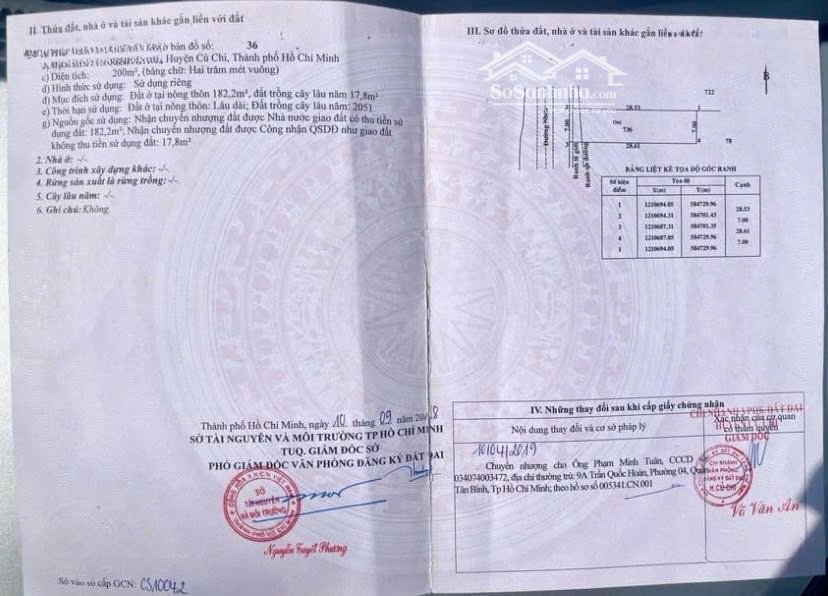 II. Thửa đất, nhà ở và tài sản khác gắn liền với đất
tờ bản đồ số: 36
Huyện Củ Chi, Thành phố Hồ Chí Minh
c) Diện tích: 200m², (bằng chữ: Hai trăm mét vuông)
d) Hình thức sử dụng: Sử dụng riêng
đ) Mục đích sử dụng: Đất ở tại nông thôn 182,2m², đất trồng cây lâu năm 17,8m²
e) Thời hạn sử dụng: Đất ở tại nông thôn: Lâu dài; Đất trồng cây lâu năm: 2051
g) Nguồn gốc sử dụng: Nhận chuyển nhượng đất được Nhà nước giao đất có thu tiền sử
dụng đất: 182,2m²; Nhận chuyển nhượng đất được Công nhận QSDĐ như giao đất
không thu tiền sử dụng đất: 17,8m²
2. Nhà ở: -/-
3. Công trình xây dựng khác: -/-
4. Rừng sản xuất là rừng trồng: -/-
5. Cây lâu năm: -/-
6. Ghi chú: Không.
Thành phố Hồ Chí Minh, ngày 10 tháng 09 năm 2018
SỞ TÀI NGUYÊN VÀ MÔI TRƯỜNG TP HỒ CHÍ MINH
TUQ. GIÁM ĐỐC SỞ
PHÓ GIÁM ĐỐC VĂN PHÒNG ĐĂNG KÝ ĐẤT ĐAI
SỞ
TÀI NGUYÊN
VÀ MÔI TRƯỜNG
THÀNH PHỐ HỒ CHÍ MINH
Nguyễn Tuyết Phương
Số vào sổ cấp GCN: CS10042
III. Sơ đồ thửa đất, nhà ở và tài sản khác gắn liền với đất:
SoSanhnha.com
B
722
28.53
2 1
Đường Nhựa
7.00
736
7.00
3 4
28.61
78
Ranh lộ giới
BẢNG LIỆT KÊ TỌA ĐỘ GÓC RANH
Số hiệu điểm Tọa độ Cạnh
X(m) Y(m)
1 1210694.05 584729.96
28.53
2 1210694.31 584701.43
7.00
3 1210687.31 584701.35
28.61
4 1210687.05 584729.96
7.00
1 1210694.05 584729.96
IV. Những thay đổi sau khi cấp giấy chứng nhận
Nội dung thay đổi và cơ sở pháp lý
Xác nhận của cơ quan
có thẩm quyền
CHI NHÁNH VPĐK ĐẤT ĐAI
GIÁM ĐỐC
10/04/2019
Chuyển nhượng cho Ông Phạm Minh Tuân, CCCD
034074003472, địa chỉ thường trú: 9A Trần Quốc Hoàn, Phường 04, Quận
Tân Bình, Tp Hồ Chí Minh; theo hồ sơ số 005341.CN.001
CHI NHÁNH
VĂN PHÒNG
ĐĂNG KÝ ĐẤT ĐAI
H.CỦ CHI
Võ Văn An